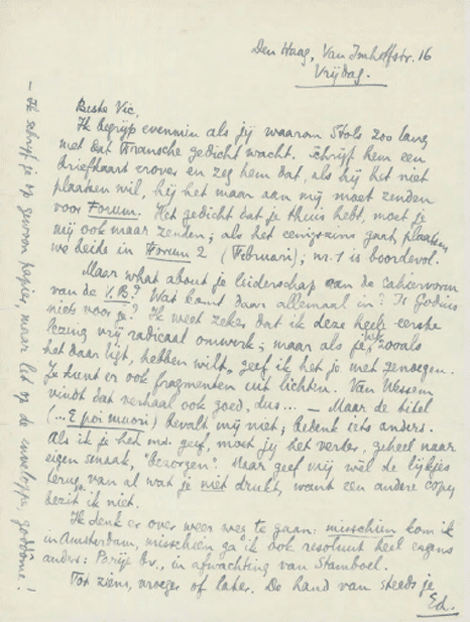 Den Haag, Van Imhoffstr. 16
Vrijdag.
Beste Vic,
Ik begrijp evenmin als jij waarom Stols zoo lang
met dat Fransche gedicht wacht. Schrijf hem een
briefkaart erover en zeg hem dat, als hij het niet
plaatsen wil, hij het maar aan mij moet zenden
voor Forum. Het gedicht dat je thuis hebt, moet je
mij ook maar zenden; als het eenigszins gaat, plaatsen
we beide in Forum 2 (Februari); nr. 1 is boordevol.
Maar what about je leiderschap van de cahiervorm
van de V.B.? Wat komt daar allemaal in? Is Godius
niets voor je? Ik weet zeker dat ik deze heele eerste
lezing vrij radicaal omwerk; maar als je het zooals
het daar ligt, hebben wilt, geef ik het je met genoegen.
Je kunt er ook fragmenten uit lichten. Van Wessem
vindt dat verhaal ook goed, dus... — Maar de titel
(...E poi muori) bevalt mij niet; bedenk iets anders.
Als ik je het ms. geef, moet jij het verder, geheel naar
eigen smaak, "bezorgen". Maar geef mij wèl de lijkjes
terug van al wat je niet drukt, want een andere copy
bezit ik niet.
Ik denk er over weer weg te gaan: misschien kom ik
in Amsterdam, misschien ga ik ook resoluut heel ergens
anders: Parijs bv., in afwachting van Stamboel.
Tot ziens, vroeger of later. De hand van steeds je
Ed.
— Ik schrijf je op gewoon papier, maar let op de enveloppe, goddôme! —